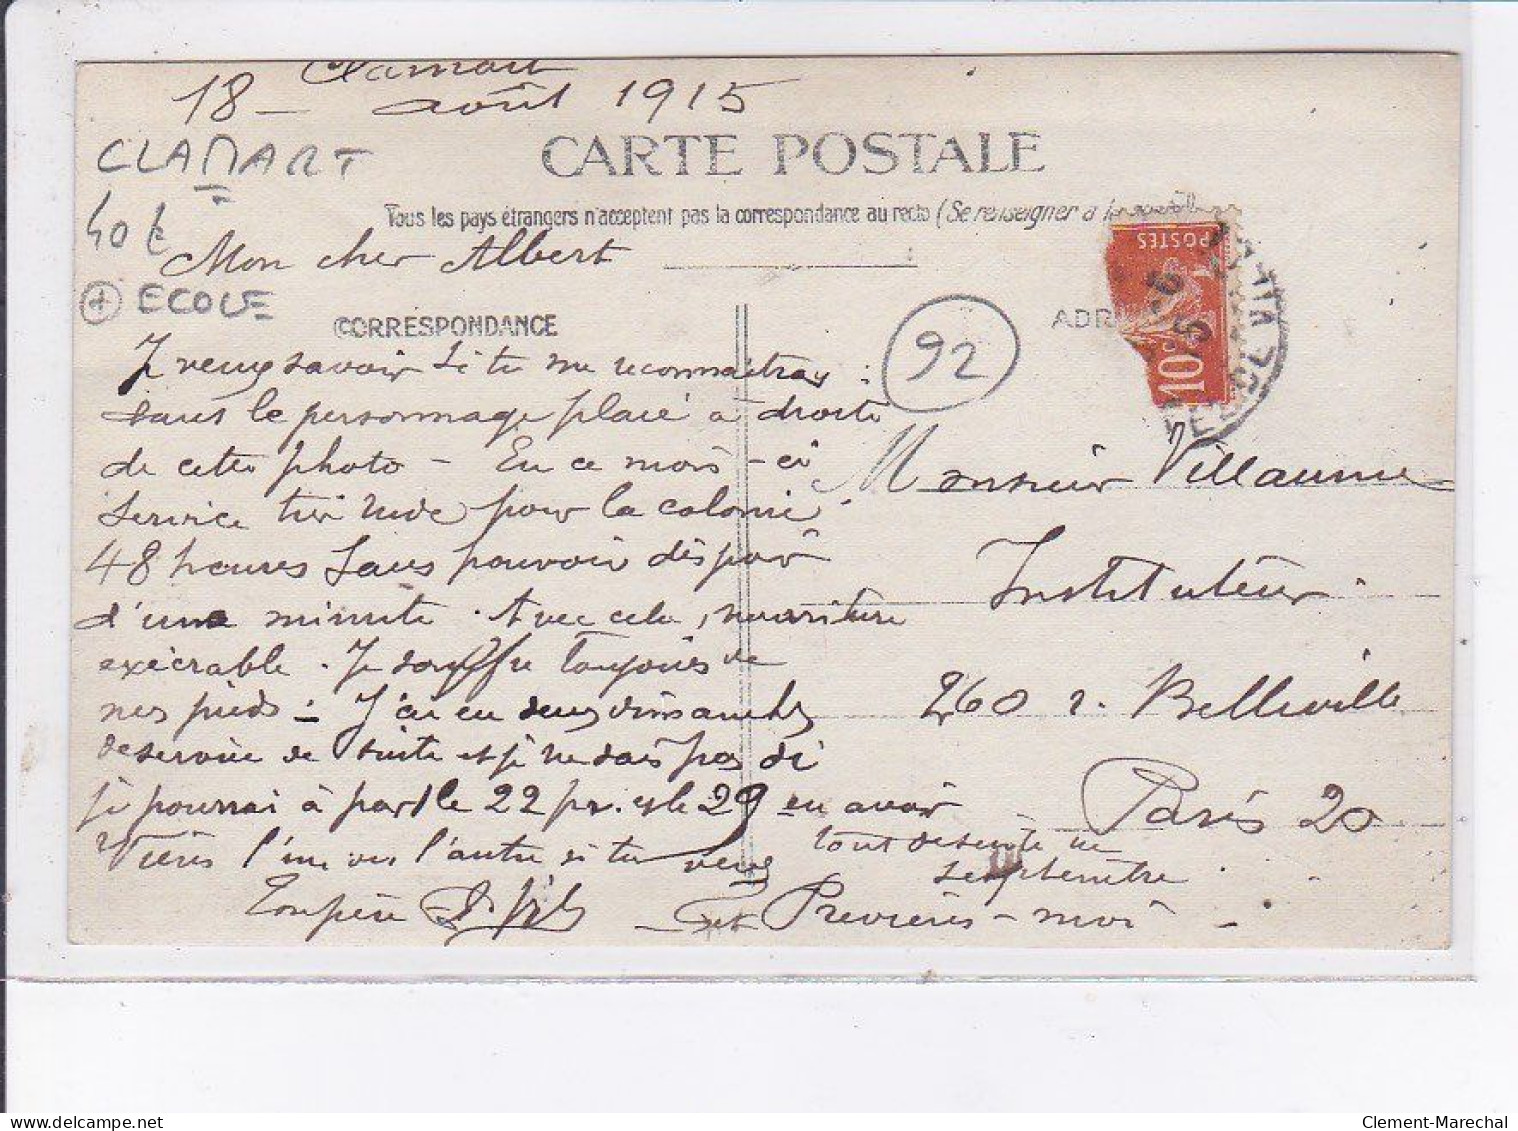 Clamart
18 - août 1915
CLAMART
CARTE POSTALE
Tous les pays étrangers n'acceptent pas la correspondance au recto (Se renseigner à la
40 £
Mon cher Albert
+ ECOLE
CORRESPONDANCE
ADR
92
POSTES
10
Je veux savoir si tu me reconnaitras
dans le personnage placé à droite
de cette photo - En ce mois-ci
service très rude pour la colonie
48 heures sans pouvoir dispos
d'une minute. Avec cela, nourriture
exécrable. Je souffre toujours de
mes pieds. J'ai eu deux dimanches
de service de suite et je ne sais pas si
je pourrai à part le 22 pr. et le 29 en avoir
tout de suite en
septembre
Viens l'un ou l'autre si tu veux
Ton père
Préviens-moi
Monsieur Villaume
Instituteur
260 r. Belleville
Paris 20
Clement-Marechal
delcampe.net